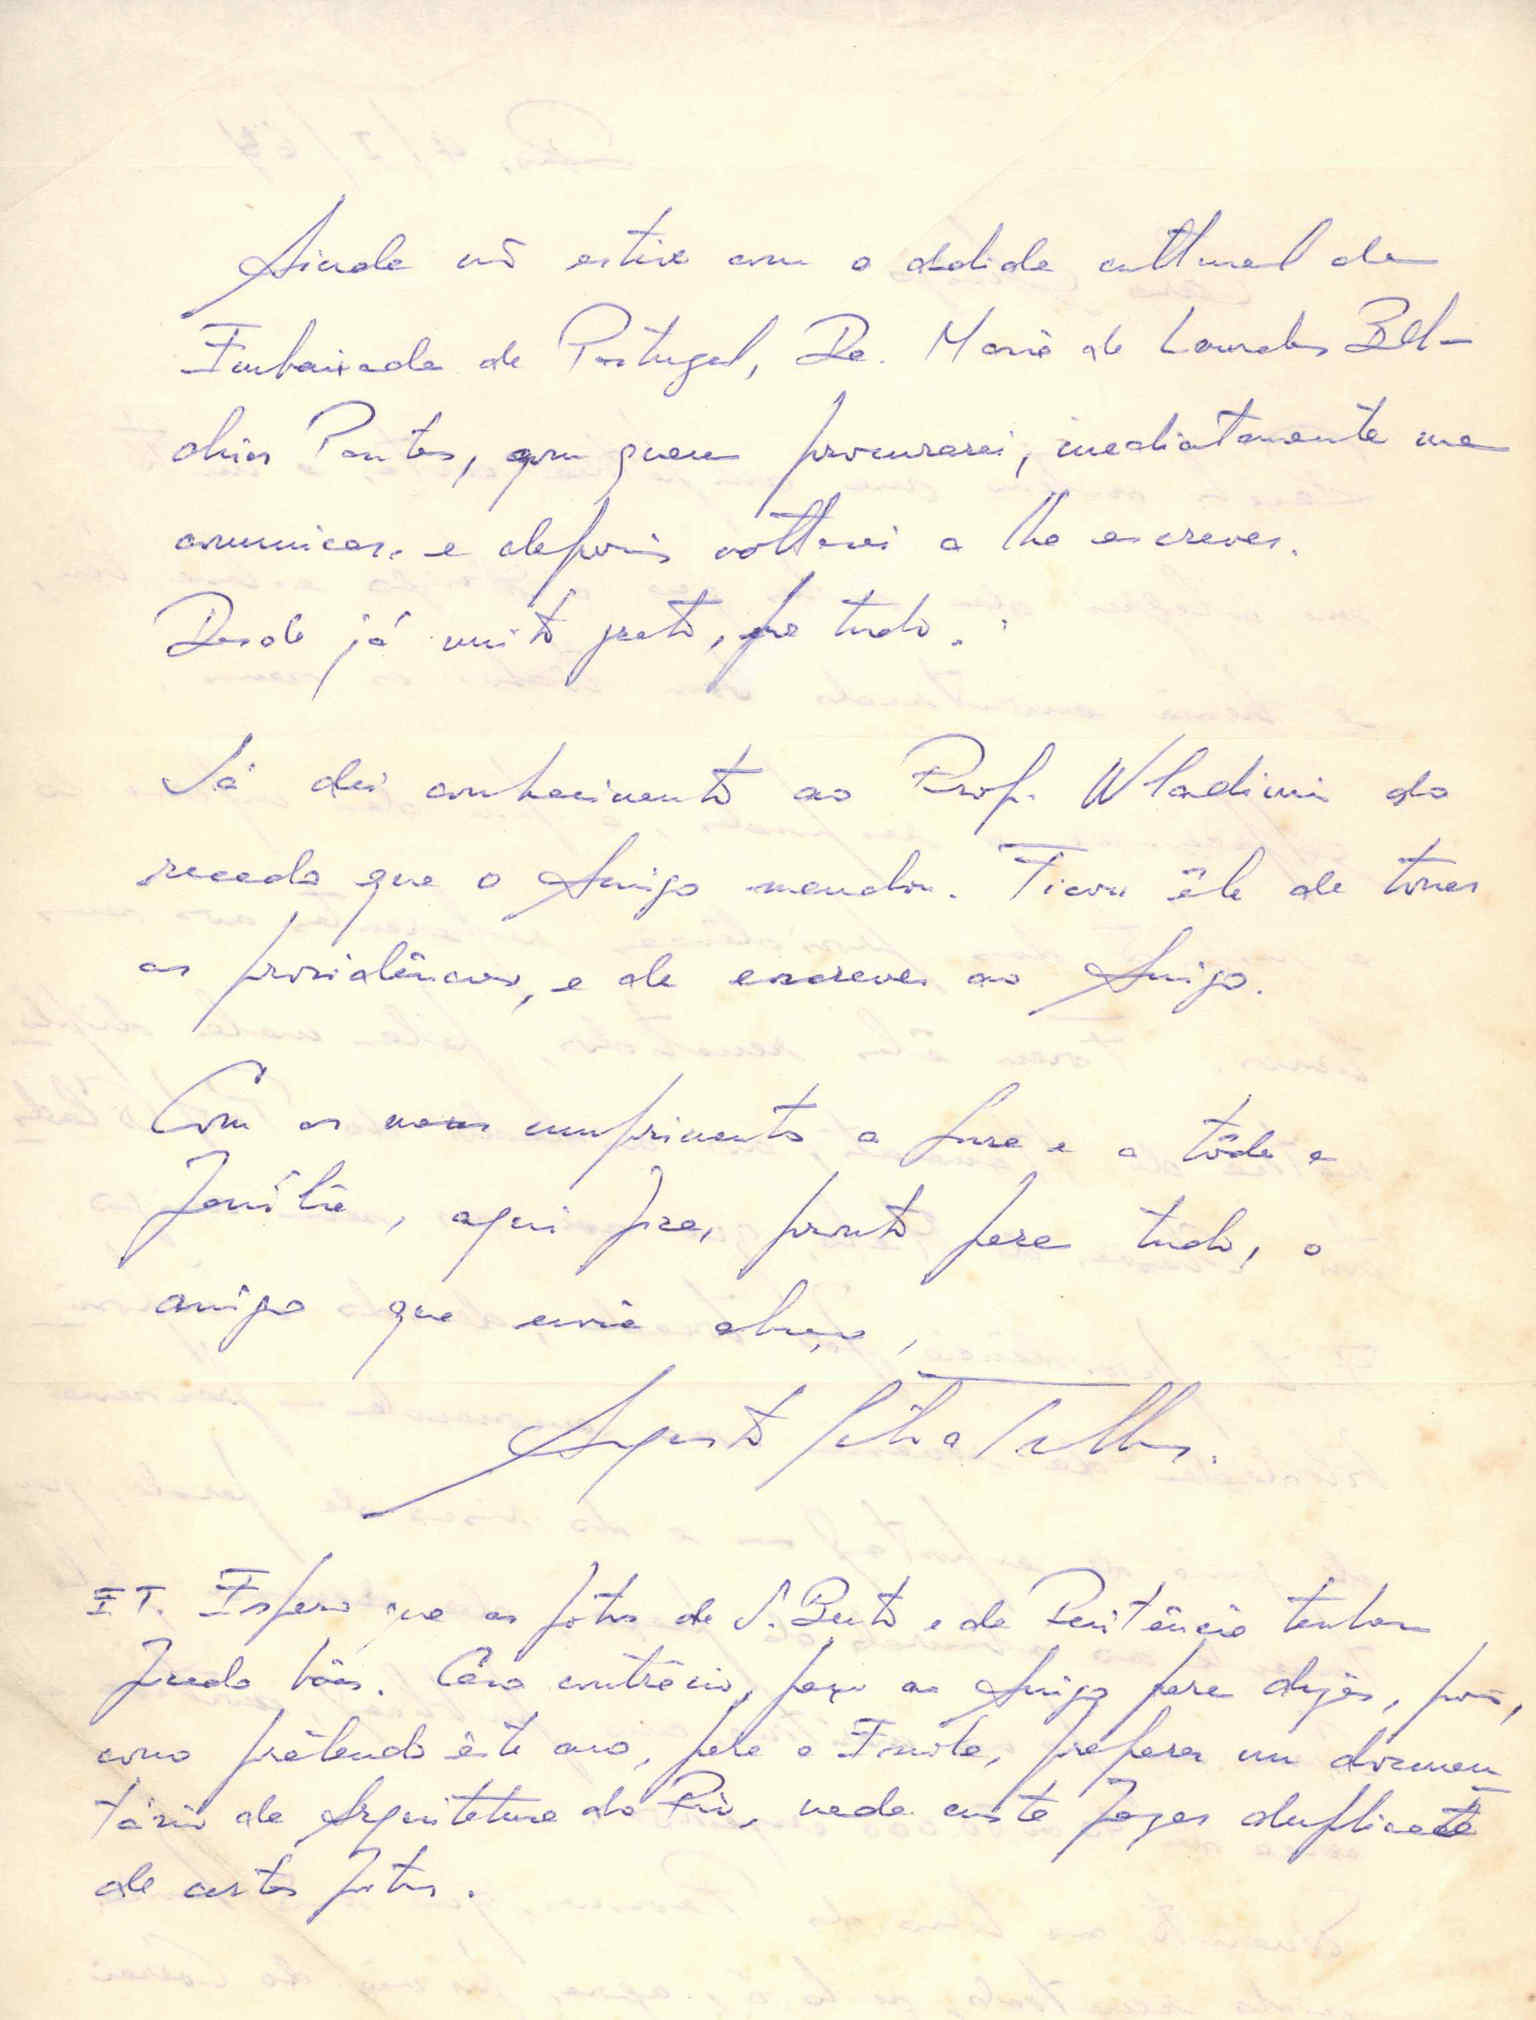 Ainda nõ estive com o adida cultural da
Embaixada de Portugal, Da. Maria de Lourdes Bel-
chior Pontes, com quem procurarei, imediatamente me
comunicar. e depois voltarei a lhe escrever.
Desde já muito grato, por tudo.
Já dei conhecimento ao Prof. Wladimir do
recado que o Amigo mandou. Ficou êle de tomar
as providências, e de escrever ao Amigo.
Com os meus cumprimentos a Sra e a tôda a
família, aqui fica, pronto para tudo, o
amigo que envia abraço,
Augusto Silva Telles.
ET. Espero que as fotos de S. Bento e da Penitência tenham
ficado bôas. Caso contrário, peço ao Amigo para dizer, pois,
como pretendo êste ano, para a Escola, preparar um documen
tário de Arquitetura do Rio, nada custa fazer duplicata
de certas fotos.